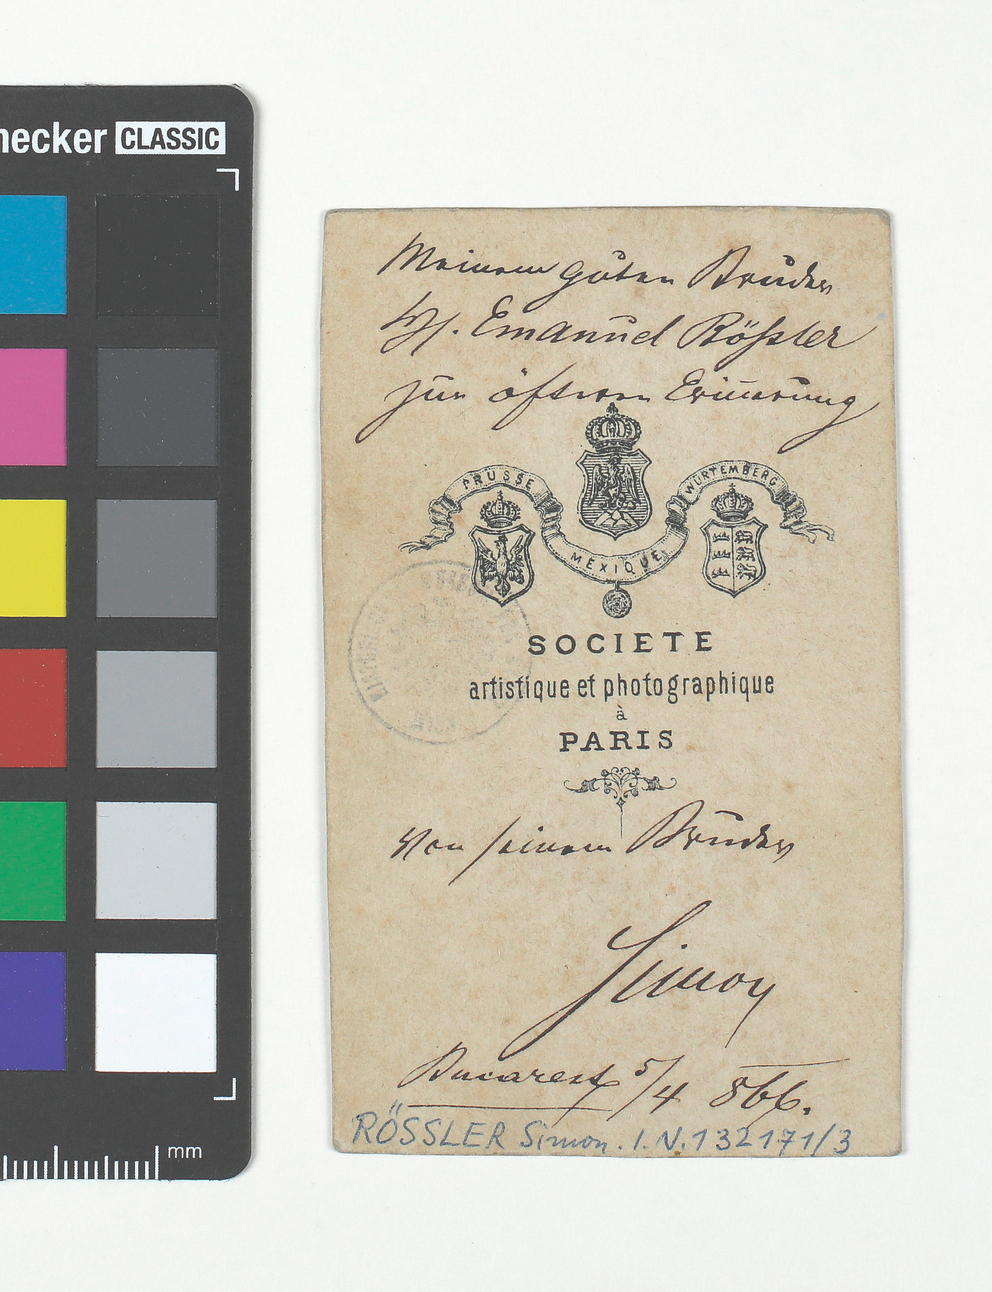 hecker CLASSIC
Meinem guten Bruder
Emanuel Rößler
zur öftren Erinerung
PRUSSE
MEXIQUE
WÜRTEMBERG
SOCIETE
artistique et photographique
à
PARIS
Von seinem Bruder
Simon
Bucarest 5/4 866.
RÖSSLER Simon. I.N.132171/3
mm